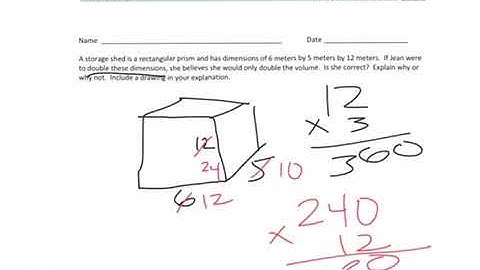 Name Date
A storage shed is a rectangular prism and has dimensions of 6 meters by 5 meters by 12 meters. If Jean were
to double these dimensions, she believes she would only double the volume. Is she correct? Explain why or
why not. Include a drawing in your explanation.
12
x 3
360
12
24
5 10
6 12
240
x 12
80